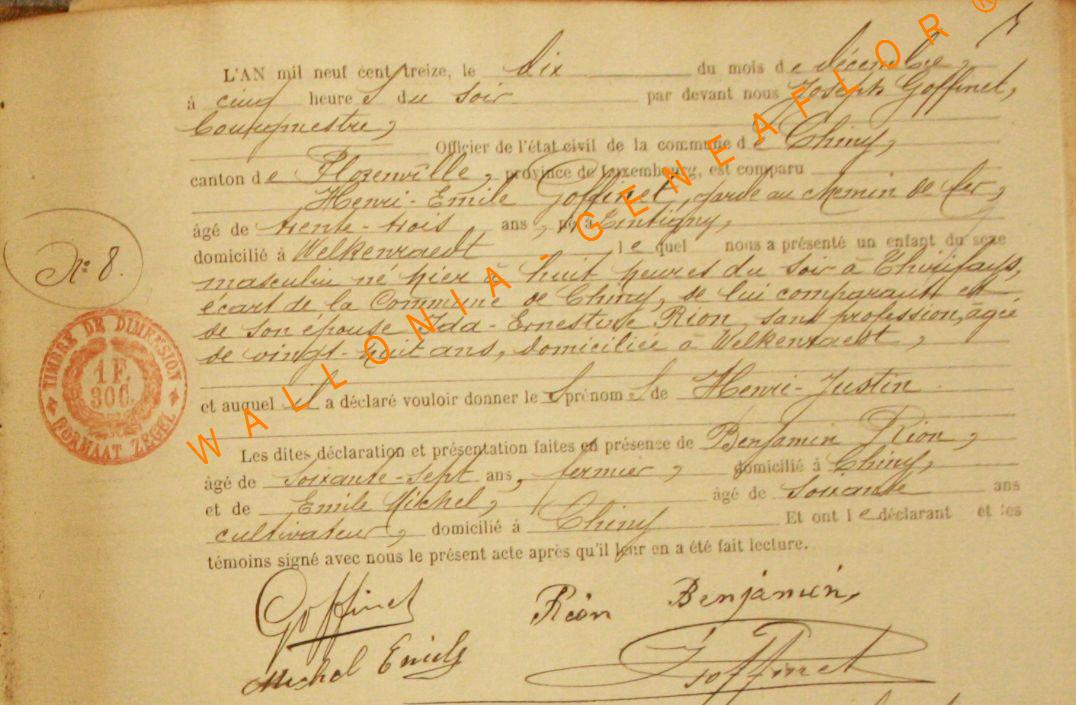 L'AN mil neuf cent treize, le dix du mois de décembre,
à cinq heures du soir par devant nous Joseph Goffinet,
Bourgmestre,
Officier de l'état civil de la commune de Chiny,
canton de Florenville, province de Luxembourg, est comparu
Henri-Emile Goffinet, garde au chemin de fer,
âgé de trente-trois ans, né à Tintigny,
domicilié à Welkenraedt, lequel nous a présenté un enfant du sexe
masculin né hier à huit heures du soir à
écart de la Commune de Chiny, de lui comparant et
de son épouse Ida-Ernestine Rion, sans profession, agée
de vingt-huit ans, domiciliée à Welkenraedt,
et auquel il a déclaré vouloir donner les prénoms de Henri-Justin
Les dites déclaration et présentation faites en présence de Benjamin Rion,
âgé de soixante-sept ans, fermier, domicilié à Chiny,
et de Emile Michel, âgé de soixante ans
cultivateur, domicilié à Chiny Et ont le déclarant et les
témoins signé avec nous le présent acte après qu'il leur en a été fait lecture.
N° 8.
TIMBRE DE DIMENSION
1 F.
30 C.
FORMAAT ZEGEL
Goffinet Rion Benjamin,
Michel Emile J Goffinet
WALLONIA - GENEAFLOR ®